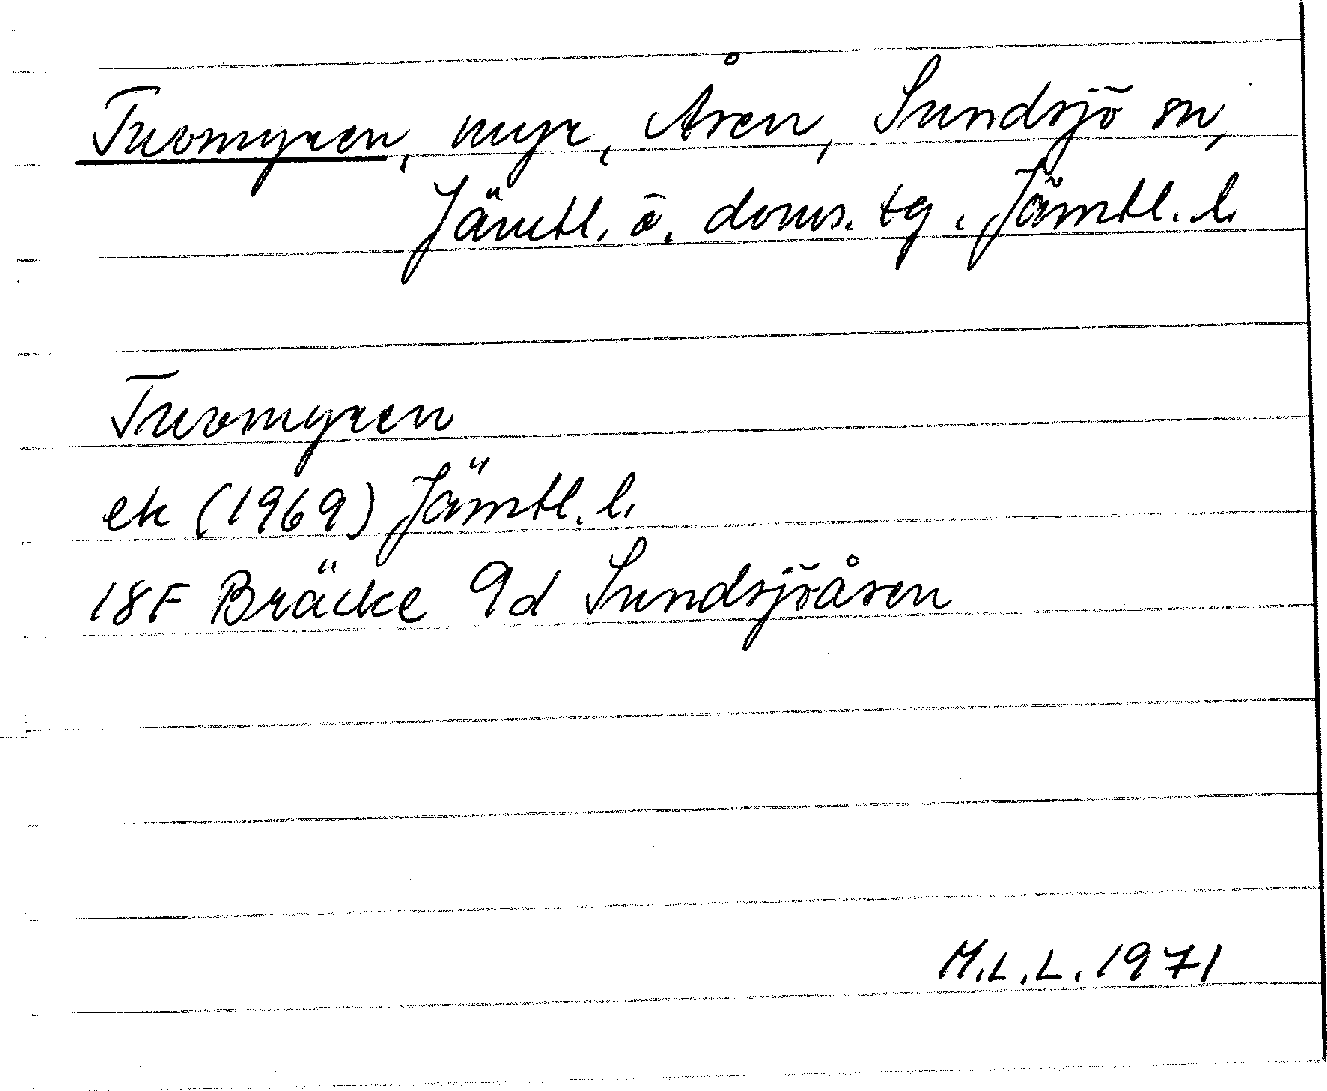 Tuvomyren, myr, Åsen, Sundsjö sn,
Jämtl. ö. doms. tg. Jämtl. l.
Tuvomyren
ek (1969) Jämtl. l.
18F Bräcke 9d Sundsjöåsen
M.L.L. 1971